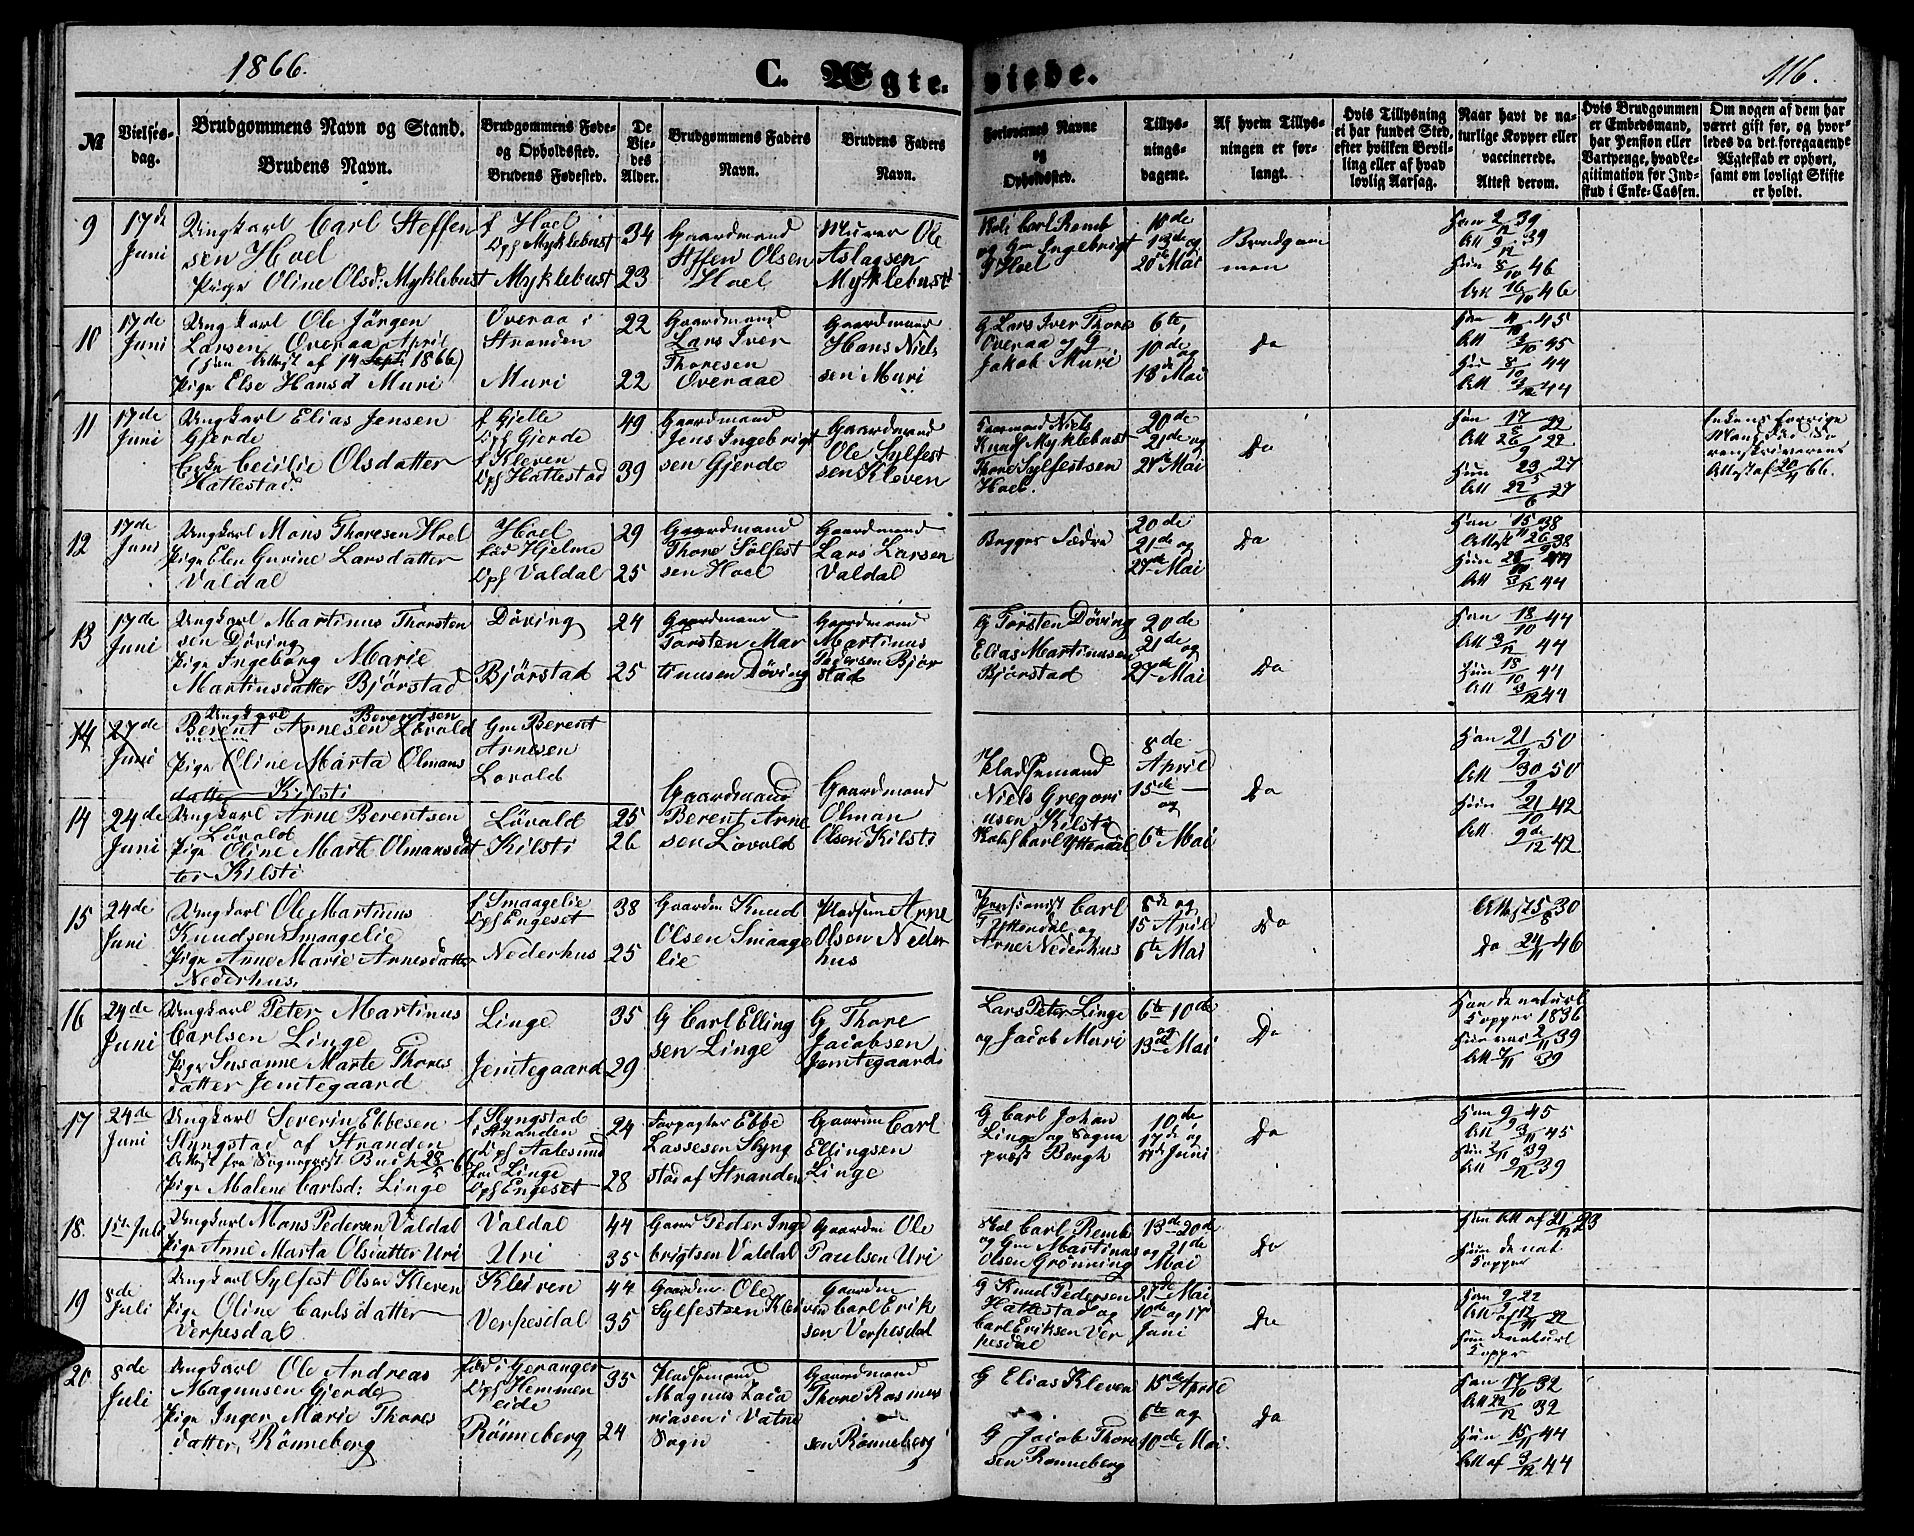 1866.
C. Ægteviede.
116.
№
Vielses-dag.
Brudgommens Navn og Stand.
Brudens Navn.
Brudgommens Føde- og Opholdssted.
Brudens Fødested.
De Viedes Alder.
Brudgommens Faders Navn.
Brudens Faders Navn.
Forlovernes Navne og Opholdssted.
Tillysningsdagene.
Af hvem Tillysningen er forlangt.
Hvis Tillysning ei har fundet Sted, efter hvilken Bevilling eller af hvad lovlig Aarsag.
Naar havt de naturlige Kopper eller vaccinerede.
Attest derom.
Hvis Brudgommen er Embedsmand, har Pension eller Vartpenge, hvad Legitimation for Indskud i Enke-Cassen.
Om nogen af dem har været gift før, og hvorledes da det foregaaende Ægteskab er ophørt, samt om lovligt Skifte er holdt.
9
17de Juni
Ungkarl Carl Steffensen Hoel
Pige Oline Olsd: Myklebust
f Hoel
Opf Myklebust
Myklebust
34
23
Gaardmand Steffen Olsen Hoel
Murer Ole Aslagsen Myklebust
Carl Remb og Gm Ingebrigt Hoel
10de 13de og 20de Mai
Brudgommen
Han 2/12 39
Att 9/12 39
Hun 8/10 46
Att 16/10 46
10
17de Juni
Ungkarl Ole Jörgen Larsen Overaa April
(Han Attest af 14 Sept 1866)
Pige Else Hansd Muri
Overaa i Stranden
Muri
22
22
Gaardmand Lars Iver Thoresen Overaae
Gaardmand Hans Nielssen Muri
G Lars Iver Thores Overaa og G Jakob Muri
6te, 10de og 13de Mai
Do
11
17de Juni
Ungkarl Elias Jensen Gjerde
Enke Cecilie Olsdatter Hattestad.
f Gjelle
Opf Gjerde
f Kleven
Opf Hattestad
49
39
Gaardmand Jens Ingebrigtsen Gjerde
Gaardmand Ole Sylfestsen Kleven
Gaarmand Niels Knudf Myklebust
Thore Sylfestsen Hoel.
20de 21de og 27de Mai
Do
Han 17/8 22
Att 26/9 22
Hun 23/5 27
Att 22/6 27
Enkens forrige Mand
Attest af 20/4 66.
12
17de Juni
Ungkarl Mons Thoresen Hoel
Pige Elen Gurine Larsdatter Valdal
Hoel
fød Hjelme
Opf Valdal
29
25
Gaardmand Thore Sölfestsen Hoel
Gaardmand Lars Larsen Valdal
Begges Fædre
20de 21de og 27de Mai
Do
13
17de Juni
Ungkarl Martinus Thorstensen Döving
Pige Ingeborg Marie Martinsdatter Bjørstad
Döving
Bjørstad
24
25
Gaardmand Torsten Martinusen Döving
Gaardmand Martinus Pedersen Bjørstad
G Torsten Døving
Elias Martinusen Bjørstad
20de 21de og 27de Mai
Do
Han 18/10 44
Att 3/12 44
Hun 18/10 44
Att 3/12 44
14
27de Juni
Ungkarl Berentsen
Berent Arnesen Lövold
Pige Oline Marta Olmansdatter Kilsti
Gm Berent Arnesen Lovold
14
24de Juni
Ungkarl Arne Berentsen Lövold
Pige Oline Marte Olmansdatter Kilsti
Lövold
Kilsti
25
26
Gaardmand Berent Arnesen Lovold
Gaardmand Olman Olsen Kilsti
Pladsemand Niels Gregoriusen Kilsti
Carl Yttendal
8de April 15de og 6te Mai
Do
Han 21/9 50
Att 30/9 50
Hun 21/10 42
Att 9de/12 42
15
24de Juni
Ungkarl Ole Martinus Knudsen Smaagelie
Pige Anne Marie Arnesdatter Nederhus,
f Smaagelie
Opf Engeset
Nederhus
38
25
Gaardm Knud Olsen Smaagelie
Pladsem Arne Olsen Nederhus
Pensionist Carl Yttendal og Arne Nederhus
8de og 15 April 6te Mai
Do
Att 25/8 30
Do 24/11 46
16
24de Juni
Ungkarl Peter Martinus Carlsen Linge
Pige Susanne Marte Thoresdatter Jemtegaard
Linge
Jemtegaard
35
29
G Carl Ellingsen Linge
G Thore Jacobsen Jemtegaard
Lars Peter Linge og Jacob Muri
6te 10de og 13de Mai
Do
Han de naturl Copper 1836
Hun vac 2/11 39
Att 7/11 39
17
24de Juni
Ungkarl Severin Ebbesen Slyngstad af Stranden
Attest fra Sognepræst Buch 28/5 66
Pige Malene Carlsd: Linge
f Slyngstad i Stranden
Opf Aalesund
fød Linge
Opf Engeset
24
28
Forpagter Ebbe Lassesen Slyngstad af Stranden
Gaardm Carl Ellingsen Linge
G Carl Johan Linge og Sognepræst Bergh
10de 17de og 11te Juni
Do
18.
1ste Juli
Ungkarl Mons Pedersen Valdal
Pige Anne Marta Olsdatter Uri
Valdal
Uri
44
35
Gaard Peder Ingebrigtsen Valdal
Gaardm Ole Paulsen Uri
Carl Remb og Gm Martinus Olsen Grönning
13de 20de og 21de Mai
Do
Han Att af 21/12 23
Hun de nat Copper
19
8de Juli
Ungkarl Sylfest Olsen Kleven
Pige Oline Carlsdatter Verpesdal
Kleiven
Verpesdal
44
35
Gaardm Ole Sylfestsen Kleiven
Gaardm Carl Eriksen Verpesdal
G Knud Pedersen Hattestad og Carl Eriksen Verpesdal
27de Mai 10de og 17 Juni
Do
Hun de naturl Copper
20
8de Juli
Ungkarl Ole Andreas Magnusen Gjerde
Pige Inger Marie Thoresdatter, Rönneberg
fød i Geranger
Opf Hemmeneide
Rönneberg
35
24
Pladsemand Magnus Zacariasen i Vatne Sogn
Gaardmand Thore Rasmussen Rönneberg
G Elias Kleven
G Jacob Thoresen Rønneberg
15de April 6te og 10de Mai.
Do
Han 17/10 32
Att 22/12 32
Hun 15/11 44
Att af 3/12 44